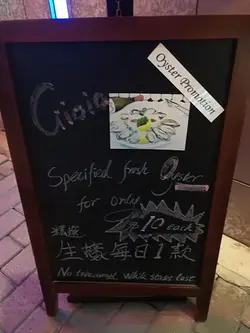 Gioia
Oyster Promotion
Specified fresh Oyster
for only
10 each
精選
生蠔每日1款
No reserved, while stocks last